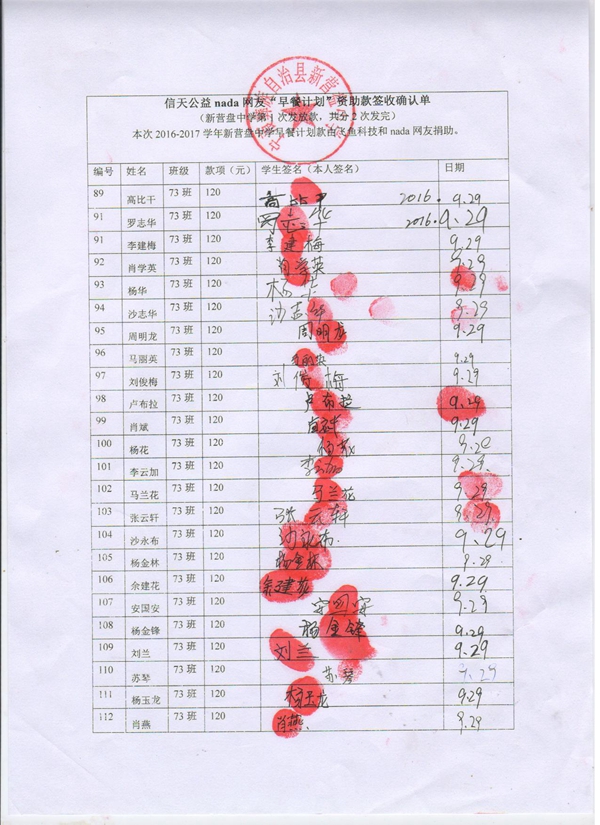 信天公益 nada 网友“早餐计划”资助款签收确认单
(新营盘中学第 1 次发放款，共分 2 次发完)
本次 2016-2017 学年新营盘中学早餐计划款由飞鱼科技和 nada 网友捐助。
编号 姓名 班级 款项（元） 学生签名（本人签名） 日期
89 高比干 73 班 120 高比干 2016. 9.29
91 罗志华 73 班 120 罗志华 2016.9.29
91 李建梅 73 班 120 李建梅 9.29
92 肖学英 73 班 120 肖学英 9.29
93 杨华 73 班 120 杨华 9.29
94 沙志华 73 班 120 沙志华 9.29
95 周明龙 73 班 120 周明龙 9.29
96 马丽英 73 班 120 9.29
97 刘俊梅 73 班 120 刘俊梅 9.29
98 卢布拉 73 班 120 卢布拉 9.29
99 肖斌 73 班 120 9.29
100 杨花 73 班 120 9.29
101 李云加 73 班 120 李云加 9.29
102 马兰花 73 班 120 马兰花 9.29
103 张云轩 73 班 120 张云轩 9.29
104 沙永布 73 班 120 沙永布 9.29
105 杨金林 73 班 120 杨金林 9.29
106 余建花 73 班 120 余建花 9.29
107 安国安 73 班 120 安国安 9.29
108 杨金锋 73 班 120 杨金锋 9.29
109 刘兰 73 班 120 刘兰 9.29
110 苏琴 73 班 120 苏琴 9.29
111 杨玉龙 73 班 120 杨玉龙 9.29
112 肖燕 73 班 120 肖燕 9.29